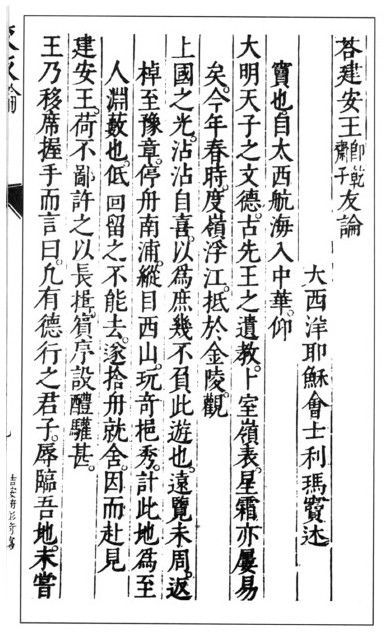 荅建安王卽乾齋子友論
大西洋耶穌會士利瑪竇述
竇也自太西航海入中華。仰
大明天子之文德。古先王之遺教。卜室嶺表。星霜亦屢易
矣。今年春時。度嶺浮江。抵於金陵。觀
上國之光。沾沾自喜。以爲庶幾不負此遊也。遠覽未周。返
棹至豫章。停舟南浦。縱目西山。玩奇挹秀。計此地爲至
人淵藪也。低回留之不能去。遂捨舟就舍。因而赴見
建安王。荷不鄙許之以長揖。賓序設醴驩甚。
王乃移席握手而言曰。凡有德行之君子。辱臨吾地。未嘗